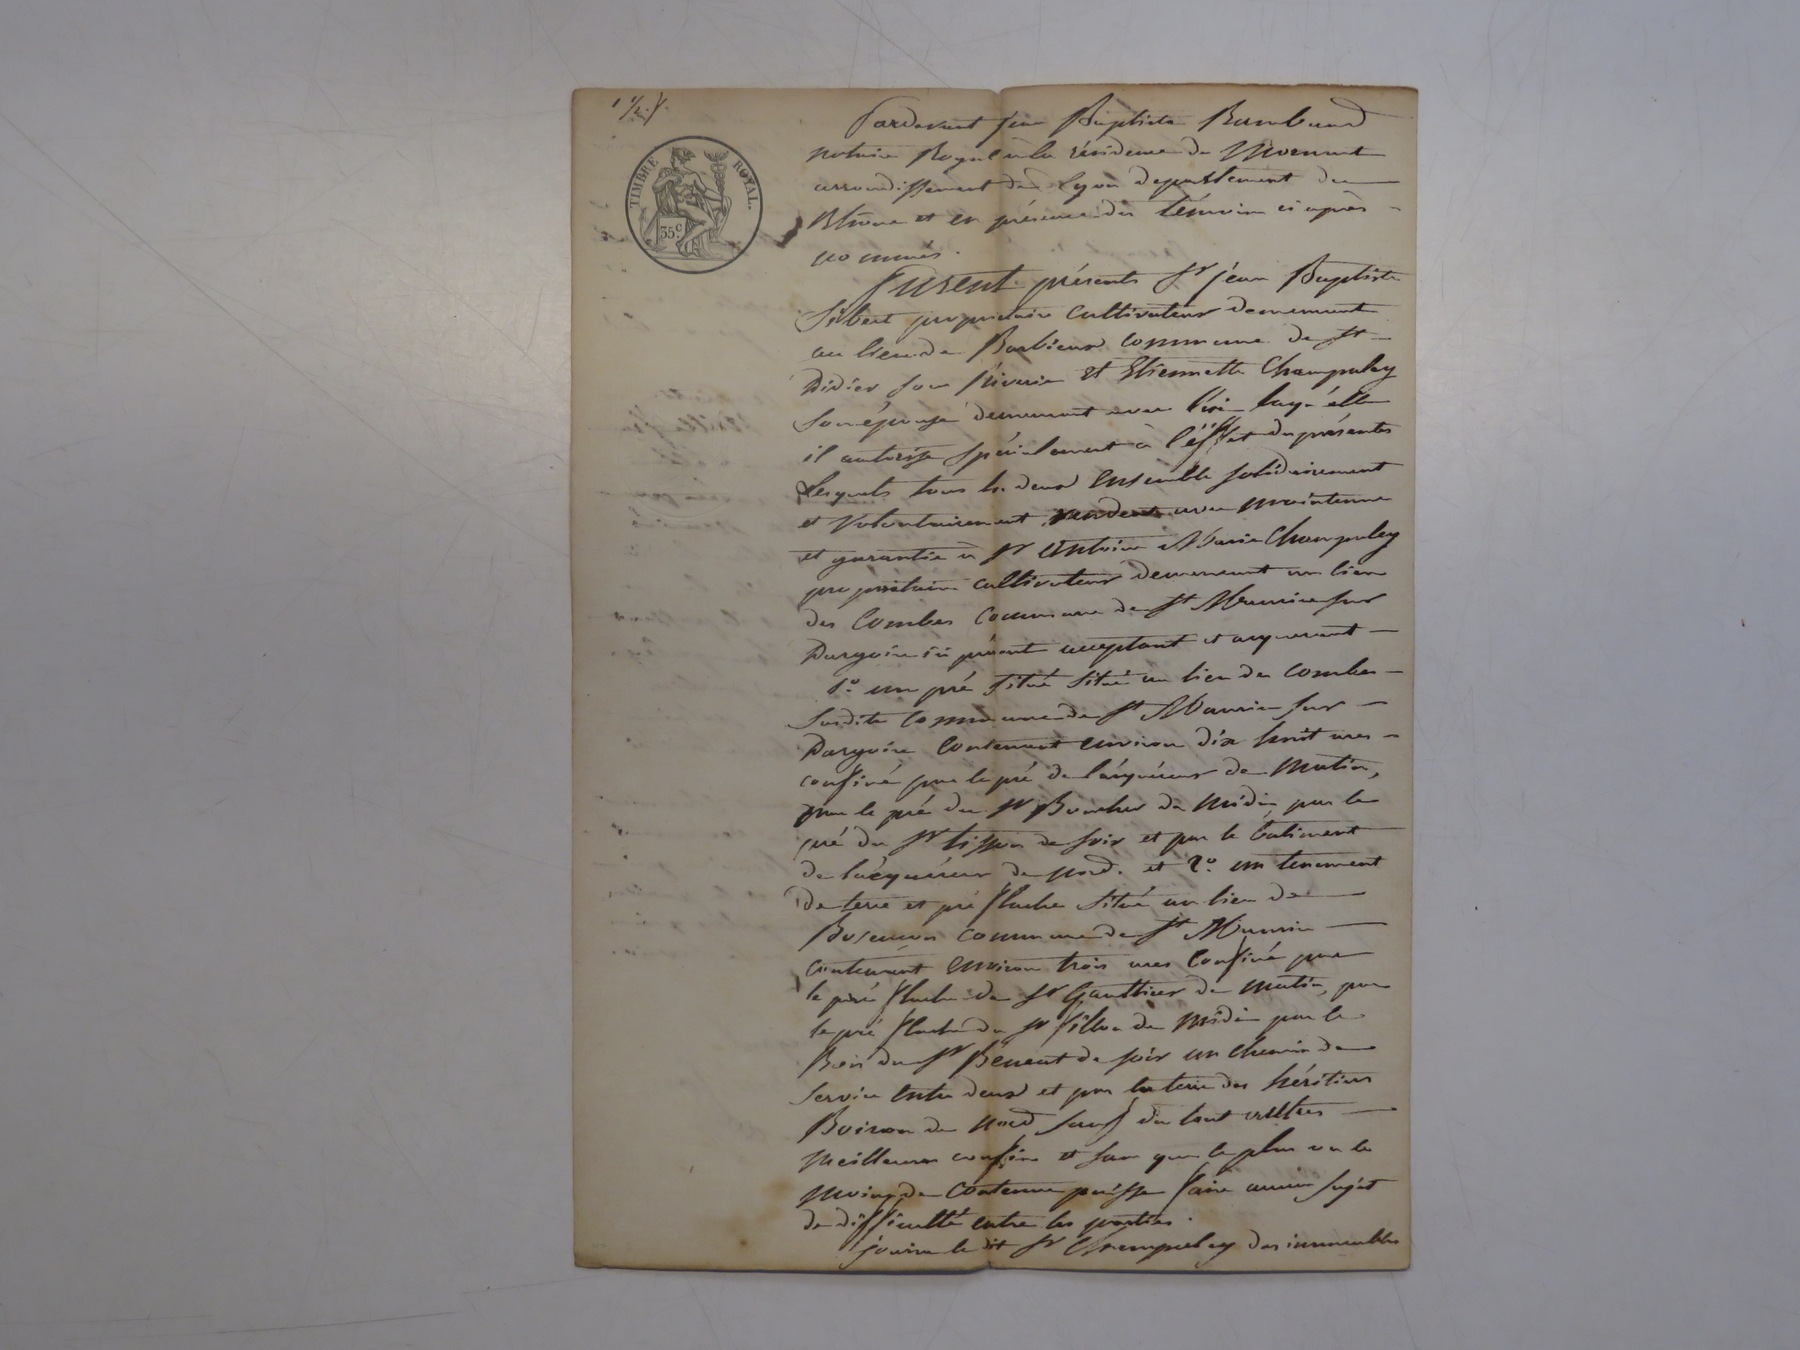 TIMBRE ROYAL.
35c
Pardevant Jean Baptiste Rambaud
notaire Royal à la résidence de Mornant
arrondissement de Lyon departement du
Rhône et en présence des témoins ci après
nommés.
Furent présents Sr jean Baptiste
Sibert propriétaire cultivateur demeurant
au lieu de commune de St
Didier sous Riverie et Etiennette Champalay
son épouse demeurant avec lui laq. elle
il autorise spécialement à l'effet des présentes
Lesquels tous les deux ensemble solidairement
et volontairement vendent avec maintenue
et garantie à Sr Antoine Marie Champalay
propriétaire cultivateur demeurant au lieu
des Combes commune de St Maurice sur
Dargoire ici présent acceptant et acquerant
1.o un pré situé situé au lieu des Combes
susdite commune de St Maurice sur
Dargoire contenant environ dix huit ares
confiné par le pré de l'acquéreur de matin,
par le pré du Sr de midi par le
pré du Sr de soir et par le batiment
de l'acquéreur de nord. et 2.o un tenement
de terre et pré situé au lieu de
commune de St Maurice
contenant environ trois ares confiné par
le pré de Sr Gauthier de matin, par
le pré du Sr de midi par le
Bois du Sr de soir un chemin de
service entre deux et par la terre des héritiers
Boiron de nord sauf du tout autres
meilleurs confins et sans que le plus ou le
moins de contenue puisse faire aucun sujet
de difficulté entre les parties.
jouira le dit Sr Champalay des immeubles